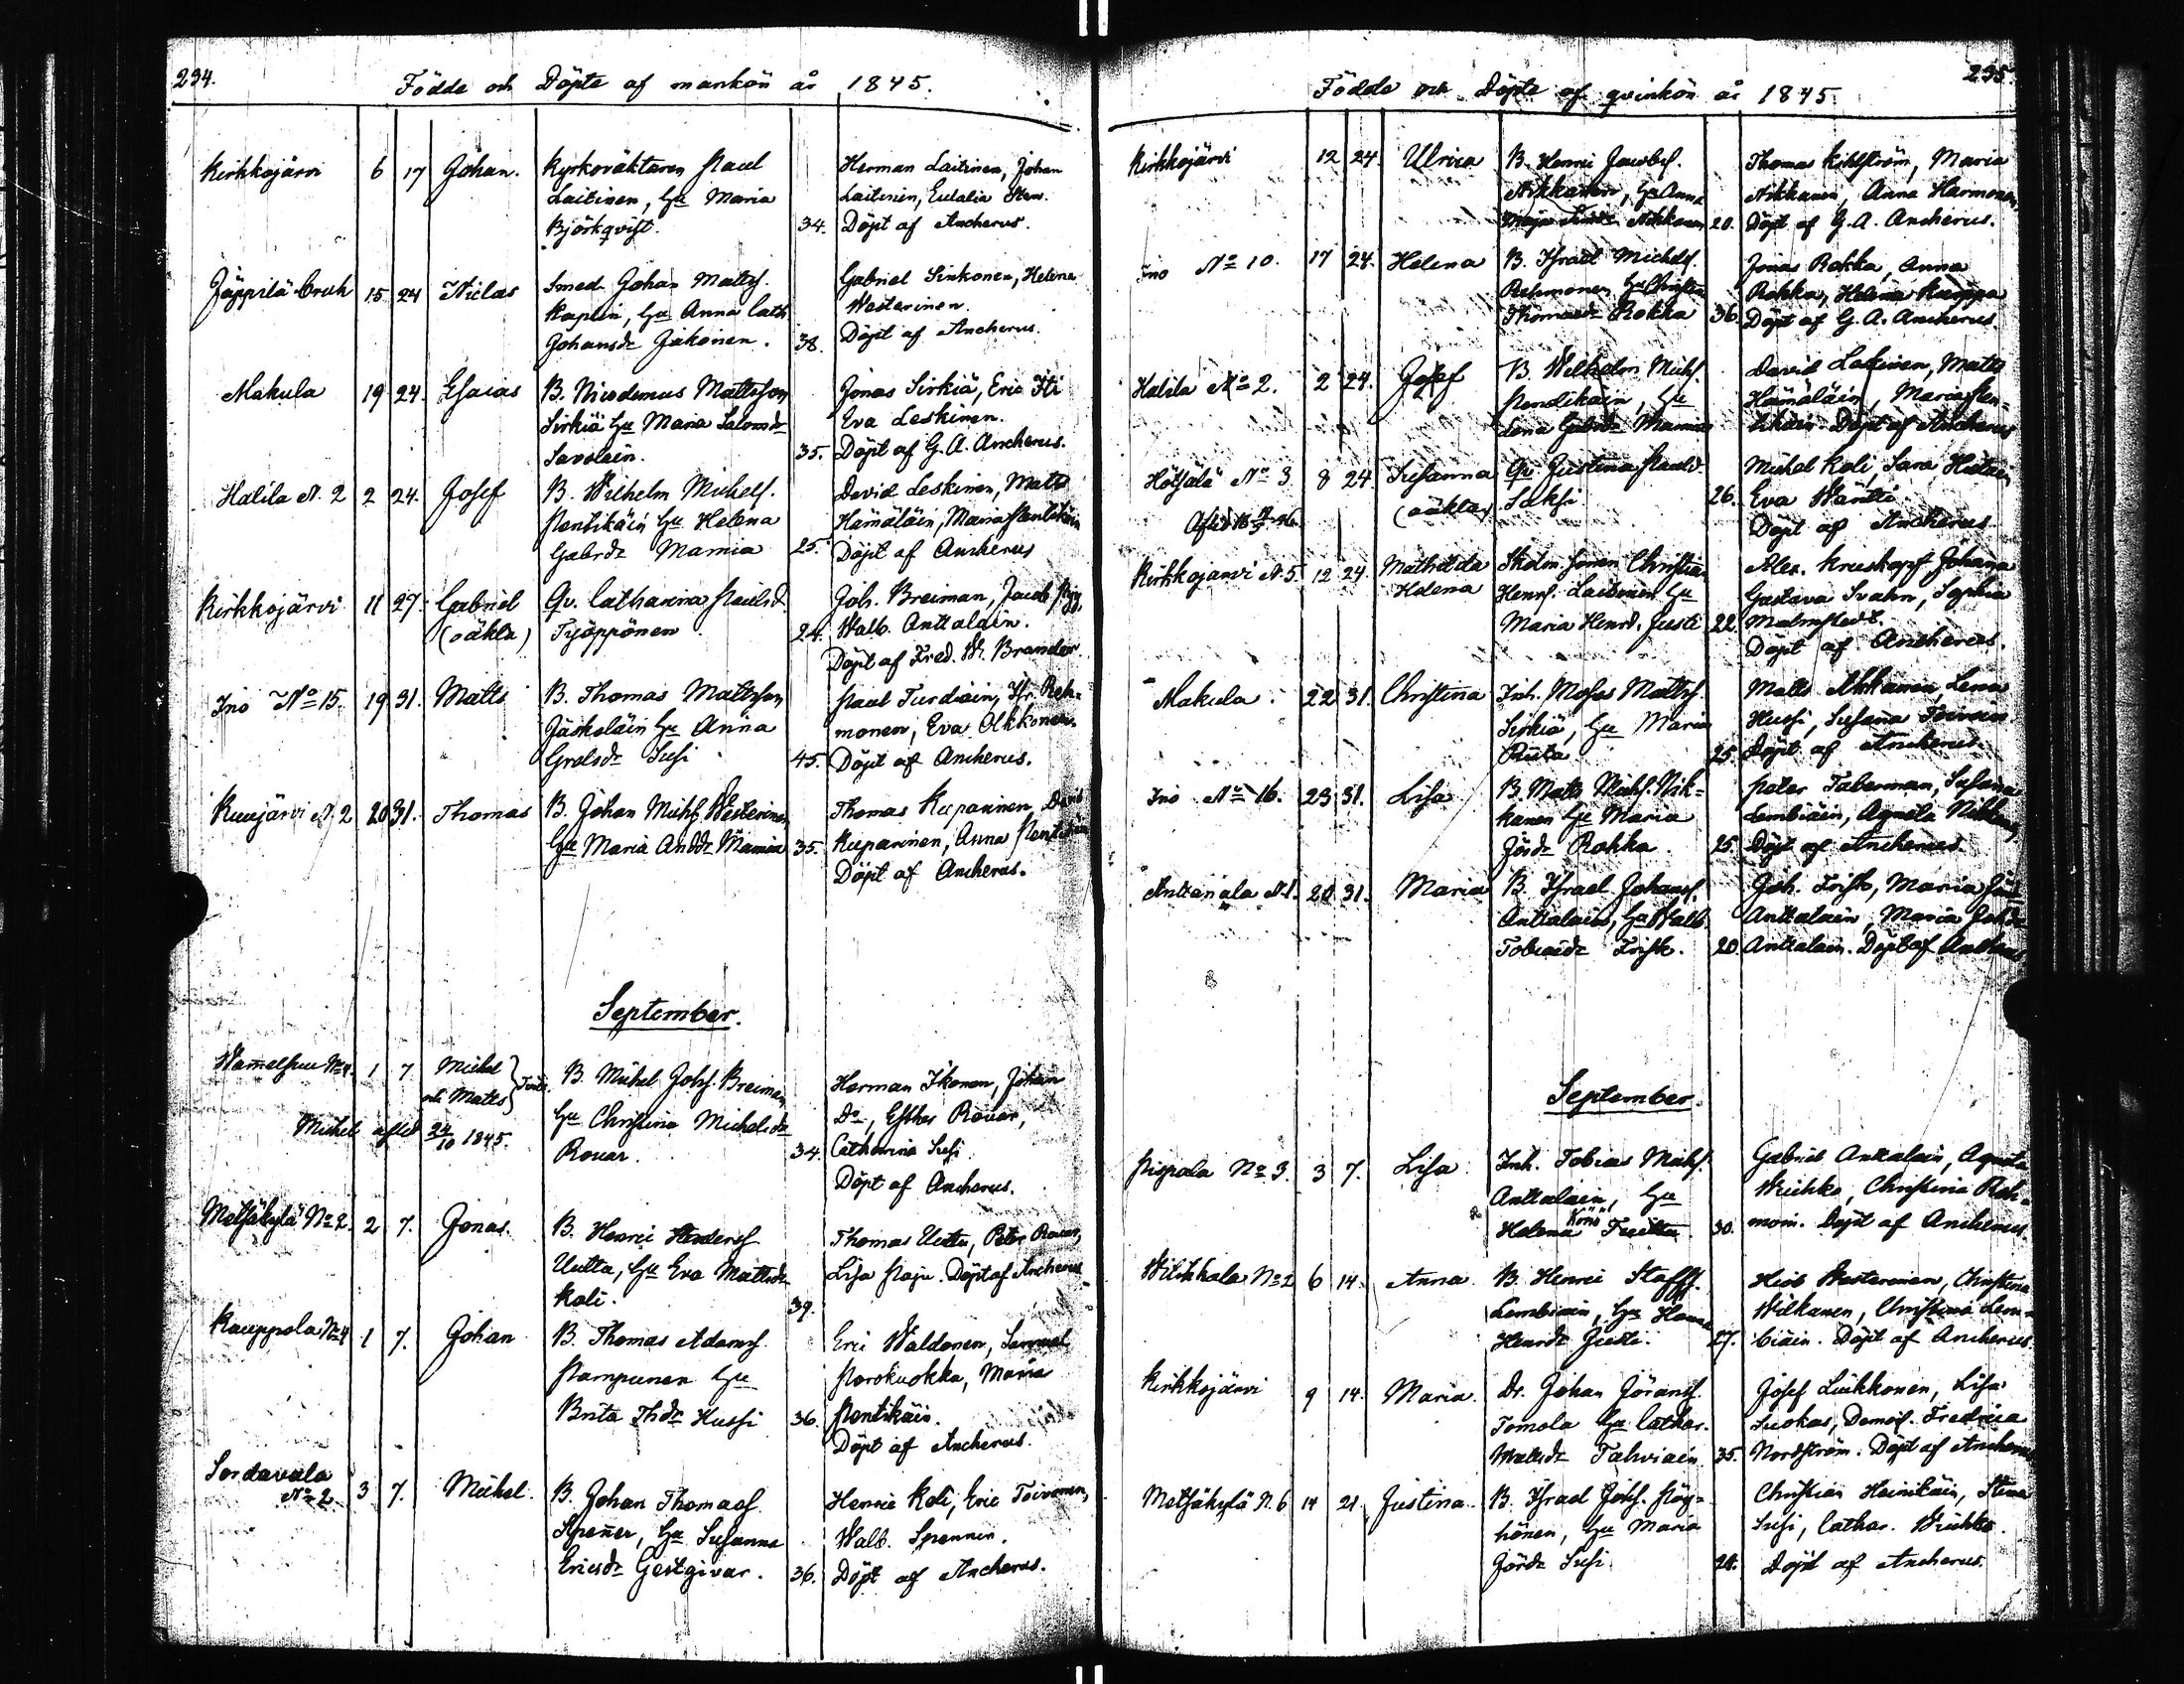 234.
Födde och Döpte af mankön år 1845.
Kirkkojärvi 6 17 Johan. Kyrkoväktaren Paul Herman Laitinen, Johan
Laitinen, Hu Maria Laitinen, Eulalia Sten.
Björkqvist. 34. Döpt af Ancherus.
Jäppilä bruk 15 24 Niclas Smed Johan Matts. Gabriel Sinkonen, Helena
Kapiin, Hu Anna Cath Westerinen
Johansdr Jäkonen. 38. Döpt af Ancherus.
Makula 19 24. Esaias B. Nicodemus Mattsson Jonas Sirkiä, Eric Iti
Sirkiä Hu Maria Salomdr Eva Leskinen.
Savolain. 35. Döpt af G. A. Ancherus.
Halila N. 2 2 24. Josef B. Wilhelm Michels. David Leskinen, Matts
Pentikäin Hu Helena Hämäläin, Maria Pentikäin
Gabrdr Mamia 25. Döpt af Ancherus
Kirkkojärvi 11 27. Gabriel Qv. Catharina Paulsd. Joh. Breiman, Jacob
(oäkta) Tyäppönen. 24. Walb. Anttalain.
Döpt af Fred. W. Brander.
Ino No 15. 19 31. Matts B. Thomas Mattsson Paul Turdiain, Hr. Reh-
Jäskeläin Hu Anna monen, Eva Akkonen.
Grelsdr Susi 45. Döpt af Ancherus.
Kuujärvi N. 2 20 31. Thomas B. Johan Michs. Westerinen Thomas Kuparinen, David
Hu Maria Anddr Mamia 35. Kuparinen, Anna Pentikäin
Döpt af Ancherus.
September.
Wamelsuu No 4. 1 7 Michel B. Michel Johs. Breiman Herman Ikonen, Johan
och Matts Hu Christina Michelsdr Do, Esther Rouar,
Michel afled 24/10 1845. Rouar. 34. Catharina Susi.
Döpt af Ancherus.
Metsäkylä No 2. 2 7. Jonas. B. Henric Hendersf Thomas Uutta, Peter Rouar,
Uutta, Hu Eva Mattsdr Lisa Paju. Döpt af Ancherus
Koli. 39.
Kauppola No 4 1 7. Johan B. Thomas Adams. Eric Waldonen, Samuel
Pampunen Hu Porokuokka, Maria
Brita Thdr Hussi 36. Pentikäin.
Döpt af Ancherus.
Sordavala
No 2. 3 7. Michel. B. Johan Thomass. Henric Koli, Eric Toivonen,
Spenner, Hu Susanna Walb. Spennen.
Ericsdr Gestgivar. 36. Döpt af Ancherus.
235.
Födde och Döpte af qvinkön år 1845.
Kirkkojärvi 12 24. Ulrica B. Henric Jacobs. Thomas Kihlström, Maria
Akkanen, Hu Anna Akkanen, Anna Harmonen,
Akkanen 20. Döpt af G. A. Ancherus.
Ino No 10. 17 24. Helena B. Israel Michels. Jonas Rokka, Anna
Rehmonen Hu Christina Rokka, Helena Kamppa
Thomasdr Rokka 36. Döpt af G. A. Ancherus.
Halila No 2. 2 24. Josef B. Wilhelm Michs. David Leskinen, Matts
Pendikäin, Hu Hämäläin, Maria Pen-
Lena Gabrdr Mamia tikäin. Döpt af Ancherus
Hötsölä No 3 8 24. Susanna Qv. Justina Paulsd. Michel Koli, Sara
(oäkta) Saksi 26. Eva Wäntti
Döpt af Ancherus
Kirkkojärvi N. 5. 12 24. Mathilda Christian Alex. Krieskopf Johana
Helena Henrs. Laitinen Hu Gustava Svahn, Sophia
Maria Henrd. Justi 22. Malmstedt.
Döpt af Ancherus.
Makula. 22 31. Christina Inh. Moses Matts. Matts Akkanen, Lena
Sirkiä, Hu Maria Hussi, Susana Toivoin
Ruita 25 Döpt af Ancherus.
Ino No 16. 23 31. Lisa B. Matts Michs. Nik- Peter Taberman, Susana
kanen Hu Maria Lembiäin, Agneta Nikkan,
Jördr Rokka. 25. Döpt af Ancherus.
Anttanala N. 1. 20 31. Maria B. Israel Johans. Joh. Frisk, Maria
Anttalain, Hu Walb. Anttalain, Maria Johdr
Tobiasdr Frisk. 20. Anttalain. Döpt af Ancherus
September.
Pispala No 3. 3 7. Lisa. Inh. Tobias Michs. Gabriel Anttalain, Agneta
Anttalain, Hu Wiehko, Christina Reh-
Helena 30. moin. Döpt af Ancherus.
Wilikkala No 2 6 14. Anna B. Henric Staffs. Hiob Westerinen, Christina
Lembiäin, Hu Wilkanen, Christina Lem-
Henrdr Justi. 27. biäin. Döpt af Ancherus.
Kirkkojärvi 9 14. Maria. Dr. Johan Jörans. Josef Luikkonen, Lisa
Tomola Hu Cathar. Suokas, Demois. Fredrica
Mattsdr Tahviain 35. Nordström. Döpt af Ancherus
Metsäkylä N. 6 14 21. Justina. B. Israel Johs. Pöy- Christian Heinikäin, Stina
hönen, Hu Maria Susi, Cathar. Wiehko.
Jördr Susi. 24. Döpt af Ancherus.